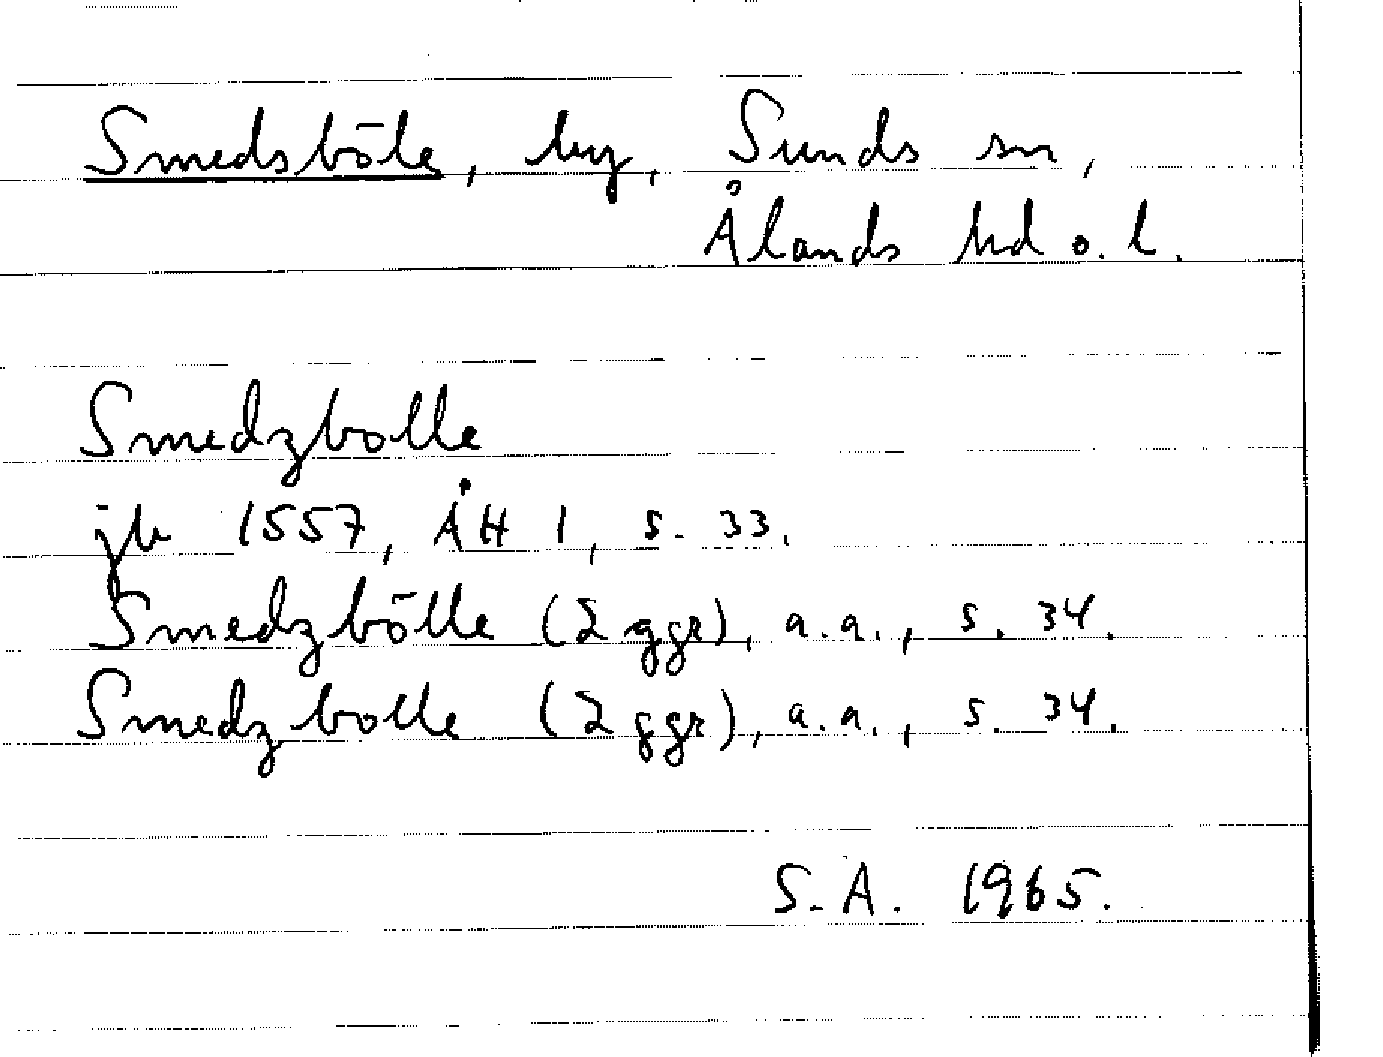 Smedsböle, by, Sunds sn,
Ålands hd o. l.
Smedzbolle
jb 1557, ÅH 1, s. 33.
Smedzbölle (2 ggr), a.a., s. 34.
Smedzbolle (2 ggr), a.a., s. 34.
S.A. 1965.